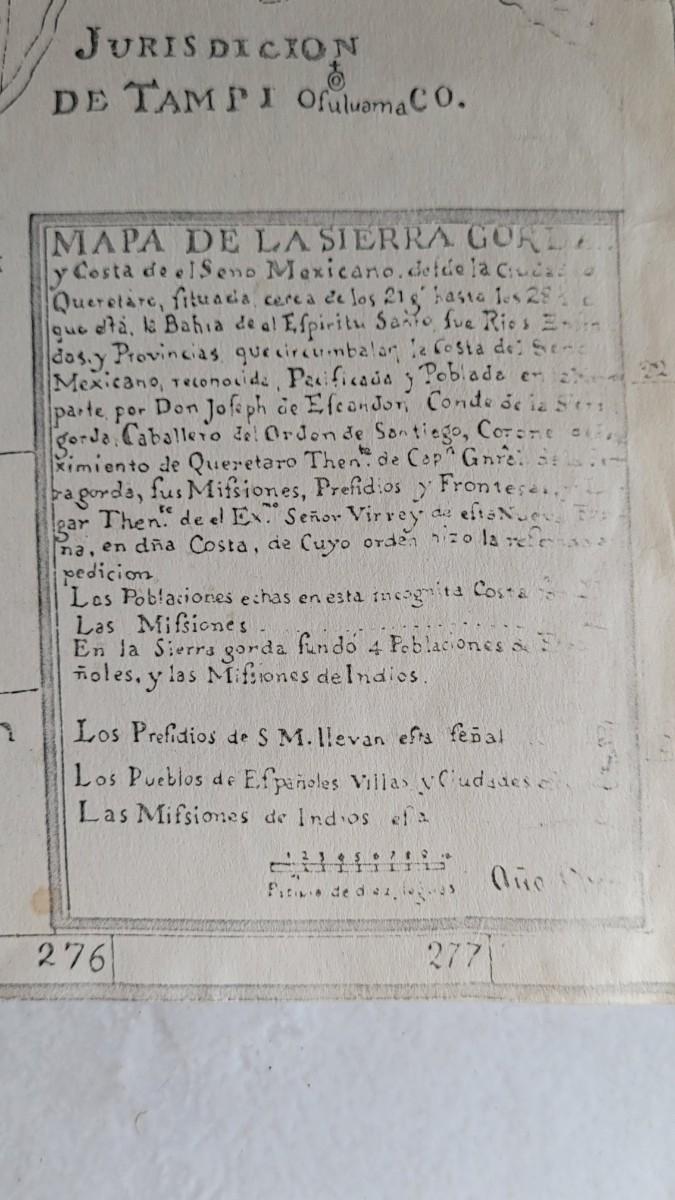 JURISDICION
DE TAMPI Osuluama CO.
MAPA DE LA SIERRA
y Costa de el Seno Mexicano, desde la
Queretaro, situada cerca de los 21 g.ˢ hasta los
que está, la Bahia de el Espiritu Santo, sus Rios
das, y Provincias, que circumbalan, la Costa del
Mexicano, reconocida, Pacificada y Poblada en
parte por Don Joseph de Escandon, Conde de la
gorda, Caballero del Orden de Santiego,
ximiento de Queretaro Then.ᵗᵉ de Cap.ⁿ Gnrâl
ragorda, sus Missiones, Presidios y Fronteras,
gar Then.ᵗᵉ de el Ex.ᵐᵒ Señor Virrey de esta
ña, en dña Costa, de Cuyo orden hizo la
pedicion
Las Poblaciones echas en esta incognita Costa
Las Missiones
En la Sierra gorda fundó 4 Poblaciones
ñoles, y las Missiones de Indios.
Los Presidios de S M. llevan esta señal
Los Pueblos de Españoles Villas y Ciudades
Las Missiones de Indios esta
1 2 3 4 5 6 7 8 9 10
de diez leguas
Año
276 277